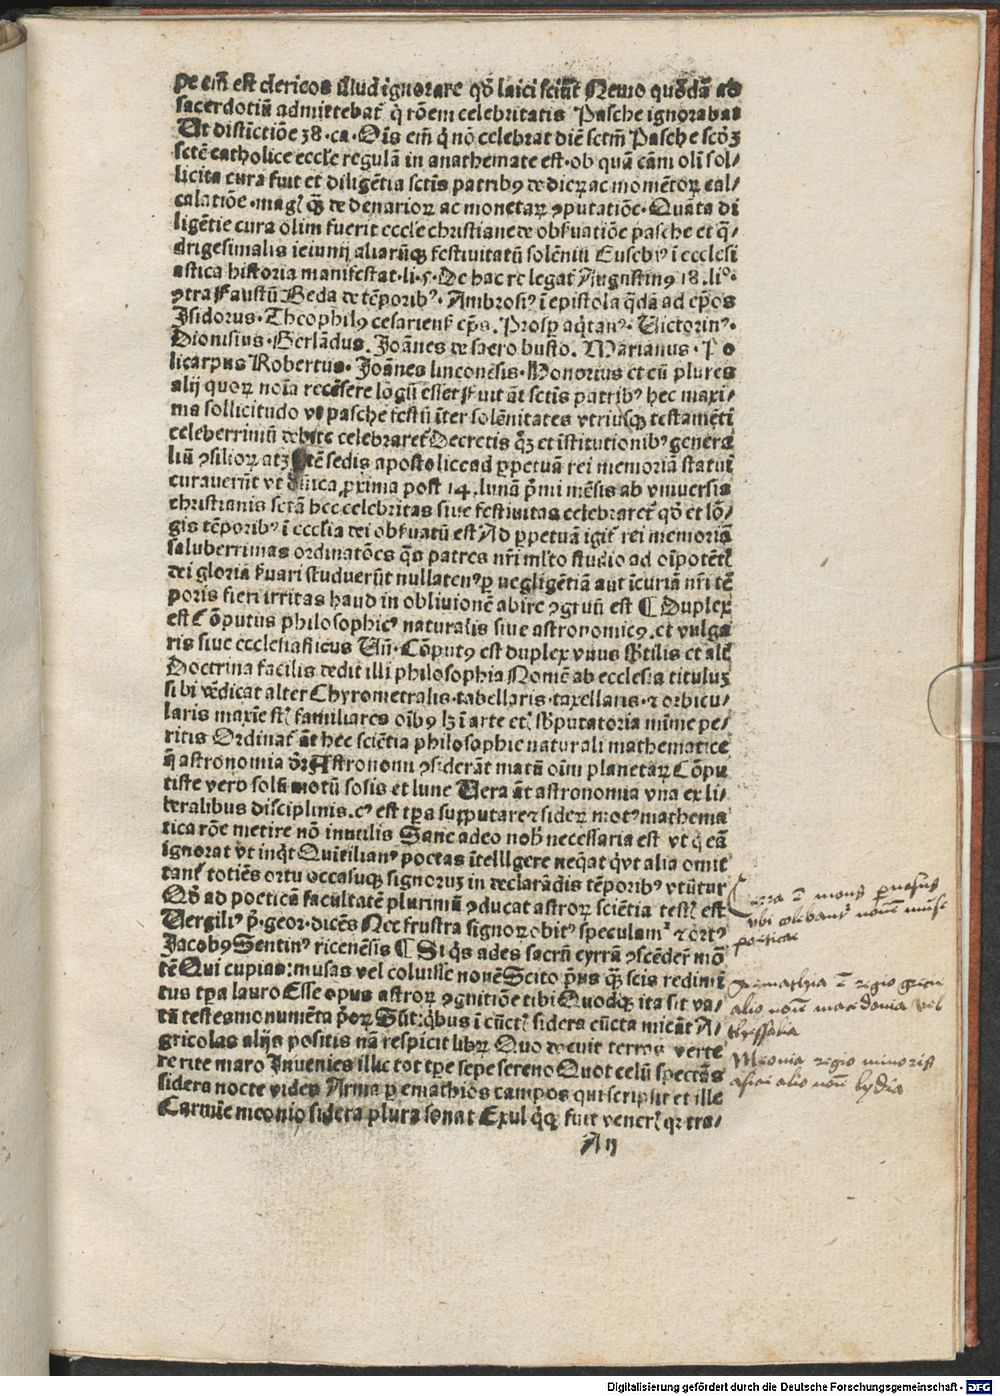 pe em̄ est clericos illud ignorare qd̄ laici sciūt Nemo quōdā ad
sacerdotiū admittebat᷑ q̇ rōem celebritatis Pasche ignorabat
Ut distictiōe 38. ca. Oīs em̄ q̇ nō celebrat diē sctm̄ Pasche scdꝫ
sctē catholice eccle regulā in anathemate est. ob quā cām olī sol/
licita cura fuit et diligētia sctis patribꝰ de dieꝝ ac momētoꝝ cal/
calatiōe. magꝭ qꝫ̄ de denarioꝝ ac monetaꝝ ꝯputatiōe. Quāta di
ligētie cura olim fuerit eccle christiane de obs̄uatiōe pasche et q̄/
drigesimalis ieiunij aliarūqꝫ festiuitatū solēniū Eusebiꝰ ī ecclesi
astica historia manifestat. li. 5. De hac re legat᷑ Augustinꝰ 18. li°.
ꝯtra Faustū Beda de tēporibꝰ. Ambrosiꝰ ī epistola q̄dā ad ep̄os
Isidorus. Theophilꝰ cesarienẜ ep̄s. Prosꝑ aq̇tanꝰ. Victorinꝰ.
Dionisius. Gerlādus. Joānes de sacro busto. Marianus. Po
licarpus Robertus. Joānes linconēsis. Honorius et cū plures
alij quoꝝ noīa recēsere lōgū esset Fuit āt sctis patribꝰ hec maxi/
ma sollicitudo vt pasche festū īter solēnitates vtriusqꝫ testamēti
celeberrimū debite celebraret᷑ Decretis qꝫ̄ et īstitutionibꝰ genera
liū ꝯsilioꝝ atqꝫ sctē sedis apostolice ad ꝑpetuā rei memoriā statui
curauerūt vt dn̄ica ꝓxima post 14. lunā p̄mi mēsis ab vniuersis
christianis sctā hec celebritas siue festiuitas celebraret᷑ qd̄ et lō/
gis tēporibꝰ ī ecclīa dei obs̄uatū est Ad ꝑpetuā igit᷑ rei memoriā
saluberrimas ordinatōes q̄s patres nr̄i ml̄to studio ad oīpotētꝭ
dei gloriā s̄uari studuerūt nullatenꝰ ꝑ negligētiā aut īcuriā nr̄i tē
poris fieri irritas haud in obliuionē abire ꝯgruū est ¶ Duplex
est Cōputus philosophicꝰ naturalis siue astronomicꝰ. et vulga
ris siue ecclesiasticus Vn̄. Cōputꝰ est duplex vnus sb̄tilis et alt̄
Doctrina facilis dedit illi philosophia Nomē ab ecclesia tituluꝫ
sibi vēdicat alter Chyrometralis. tabellaris. taxellaris. ⁊ orbicu/
laris maxīe stꝭ familiares oībꝰ lꝫ ī arte etꝭ sb̄putatoria mīme pe/
ritis Ordinat᷑ āt hec sciētia philosophie naturali mathematice
q̄ astronomia dr̄ Astronomi ꝯsiderāt motū oīm planetaꝝ Cōpu
tiste vero solū motū solis et lune Vera āt astronomia vna ex li/
beralibus disciplinis. cꝰ est tp̄a supputare ⁊ sideꝝ motꝰ mathema
tica rōe metire nō inutilis Sane adeo nob̄ necessaria est vt q̇ eā
ignorat vt inq̇t Quītilianꝰ poetas ītelligere neq̄at qͥ vt alia omit
tant᷑ totiēs ortu occasuqꝫ signoruꝫ in declarādis tēporibꝰ vtūtur
Qd̄ ad poeticā facultatē plurimū ꝯducat astroꝝ sciētia testꝭ est
Vergiliꝰ p̄. geor. dicēs Nec frustra signoꝝ obitꝰ speculamꝰ ⁊ ortꝰ
Jacobꝰ Sentinꝰ ricenēsis ¶ Si q̇s ades sacrū cyrrā ꝯscēder̄ mō
tē Qui cupias: musas vel coluisse nouē Scito p̄us qꝫ̄ scis redimi
tus tp̄a lauro Esse opus astroꝝ ꝯgnitiōe tibi Quodqꝫ ita sit va/
tū testes monumēta p̄oꝝ Sūt: q̇bus ī cūctꝭ sidera cūcta micāt A/
gricolas alijs positis nā respicit libꝝ Quo docuit terras verte
re rite maro Inuenies illic tot tp̄e sepe sereno Quot celū spectās
sidera nocte vides Arma ꝑ emathios campos qui scripsit et ille
Carmīe meonio sidera plura sonat Exul q̇qꝫ fuit venerꝭ qꝛ tra/
A ij
Cirra ē mons pernasus
vbi colebant᷑ nouē muse
poeticae
Aemathia ē regio grecie
alio noīe macedonia vel
thessalia
Meonia regio minoris
asiae alio noīe lydia
Digitalisierung gefördert durch die Deutsche Forschungsgemeinschaft - DFG